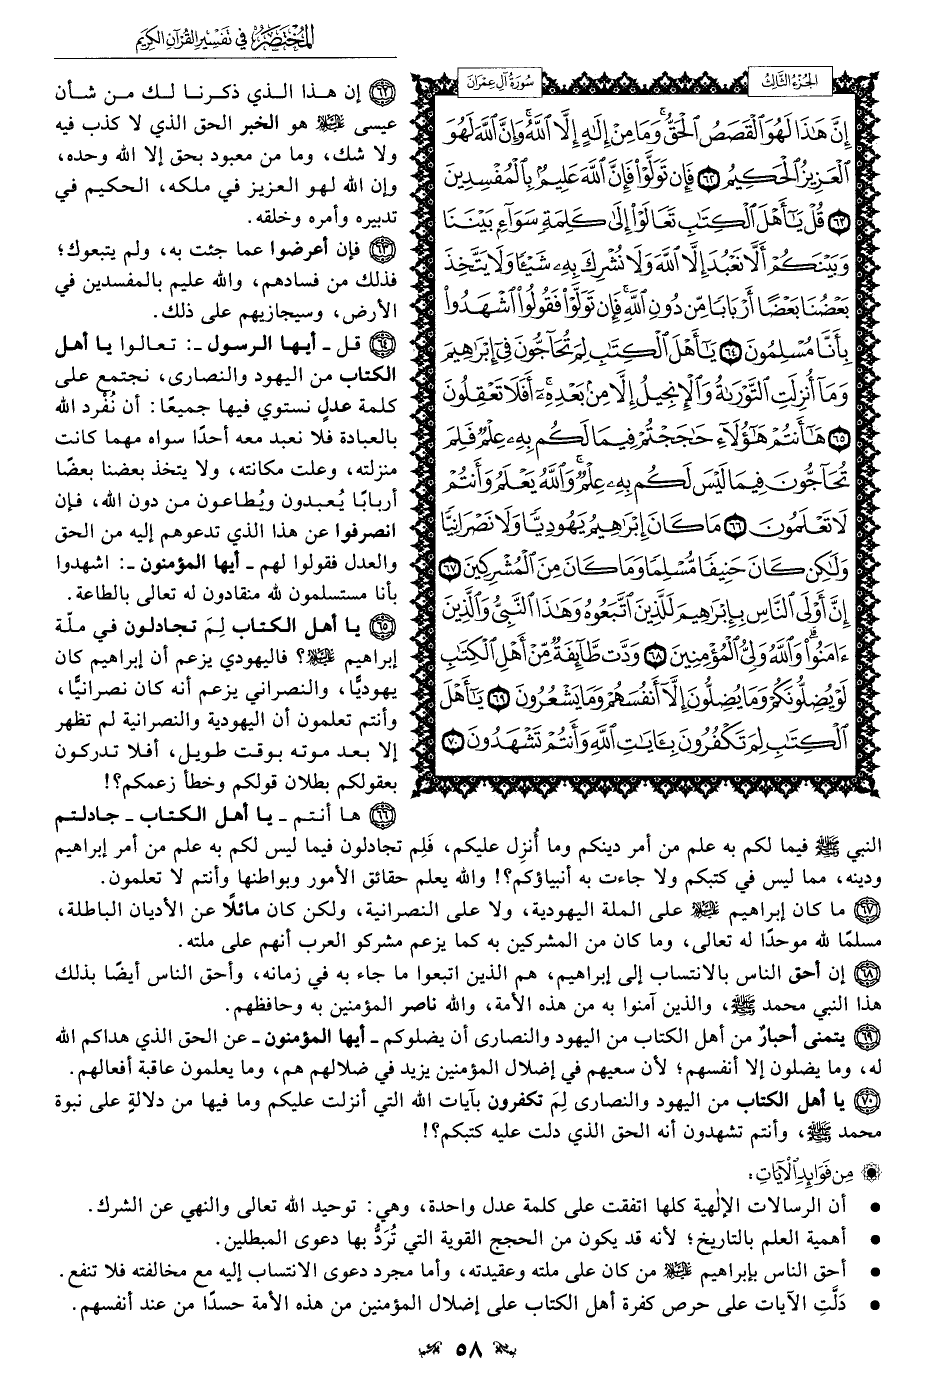 المختصر في تفسير القرآن الكريم
الجزء الثالث
سورة آل عمران
إِنَّ هَٰذَا لَهُوَ ٱلْقَصَصُ ٱلْحَقُّ ۚ وَمَا مِنْ إِلَٰهٍ إِلَّا ٱللَّهُ ۚ وَإِنَّ ٱللَّهَ لَهُوَ
ٱلْعَزِيزُ ٱلْحَكِيمُ ٦٢ فَإِن تَوَلَّوْا۟ فَإِنَّ ٱللَّهَ عَلِيمٌۢ بِٱلْمُفْسِدِينَ
٦٣ قُلْ يَٰٓأَهْلَ ٱلْكِتَٰبِ تَعَالَوْا۟ إِلَىٰ كَلِمَةٍ سَوَآءٍۭ بَيْنَنَا
وَبَيْنَكُمْ أَلَّا نَعْبُدَ إِلَّا ٱللَّهَ وَلَا نُشْرِكَ بِهِۦ شَيْـًٔا وَلَا يَتَّخِذَ
بَعْضُنَا بَعْضًا أَرْبَابًا مِّن دُونِ ٱللَّهِ ۚ فَإِن تَوَلَّوْا۟ فَقُولُوا۟ ٱشْهَدُوا۟
بِأَنَّا مُسْلِمُونَ ٦٤ يَٰٓأَهْلَ ٱلْكِتَٰبِ لِمَ تُحَآجُّونَ فِىٓ إِبْرَٰهِيمَ
وَمَآ أُنزِلَتِ ٱلتَّوْرَىٰةُ وَٱلْإِنجِيلُ إِلَّا مِنۢ بَعْدِهِۦٓ ۚ أَفَلَا تَعْقِلُونَ
٦٥ هَٰٓأَنتُمْ هَٰٓؤُلَآءِ حَٰجَجْتُمْ فِيمَا لَكُم بِهِۦ عِلْمٌ فَلِمَ
تُحَآجُّونَ فِيمَا لَيْسَ لَكُم بِهِۦ عِلْمٌ ۚ وَٱللَّهُ يَعْلَمُ وَأَنتُمْ
لَا تَعْلَمُونَ ٦٦ مَا كَانَ إِبْرَٰهِيمُ يَهُودِيًّا وَلَا نَصْرَانِيًّا
وَلَٰكِن كَانَ حَنِيفًا مُّسْلِمًا وَمَا كَانَ مِنَ ٱلْمُشْرِكِينَ ٦٧
إِنَّ أَوْلَى ٱلنَّاسِ بِإِبْرَٰهِيمَ لَلَّذِينَ ٱتَّبَعُوهُ وَهَٰذَا ٱلنَّبِىُّ وَٱلَّذِينَ
ءَامَنُوا۟ ۗ وَٱللَّهُ وَلِىُّ ٱلْمُؤْمِنِينَ ٦٨ وَدَّت طَّآئِفَةٌ مِّنْ أَهْلِ ٱلْكِتَٰبِ
لَوْ يُضِلُّونَكُمْ وَمَا يُضِلُّونَ إِلَّآ أَنفُسَهُمْ وَمَا يَشْعُرُونَ ٦٩ يَٰٓأَهْلَ
ٱلْكِتَٰبِ لِمَ تَكْفُرُونَ بِـَٔايَٰتِ ٱللَّهِ وَأَنتُمْ تَشْهَدُونَ ٧٠
٦٢ إن هذا الذي ذكرنا لك من شأن
عيسى ﵇ هو الخبر الحق الذي لا كذب فيه
ولا شك، وما من معبود بحق إلا الله وحده،
وإن الله لهو العزيز في ملكه، الحكيم في
تدبيره وأمره وخلقه.
٦٣ فإن أعرضوا عما جئت به، ولم يتبعوك؛
فذلك من فسادهم، والله عليم بالمفسدين في
الأرض، وسيجازيهم على ذلك.
٦٤ قل ـ أيها الرسول ـ: تعالوا يا أهل
الكتاب من اليهود والنصارى، نجتمع على
كلمة عدلٍ نستوي فيها جميعًا: أن نُفْرد الله
بالعبادة فلا نعبد معه أحدًا سواه مهما كانت
منزلته، وعلت مكانته، ولا يتخذ بعضنا بعضًا
أربابًا يُعبدون ويُطاعون من دون الله، فإن
انصرفوا عن هذا الذي تدعوهم إليه من الحق
والعدل فقولوا لهم ـ أيها المؤمنون ـ: اشهدوا
بأنا مستسلمون لله منقادون له تعالى بالطاعة.
٦٥ يا أهل الكتاب لِمَ تجادلون في ملّة
إبراهيم ﵇؟ فاليهودي يزعم أن إبراهيم كان
يهوديًّا، والنصراني يزعم أنه كان نصرانيًّا،
وأنتم تعلمون أن اليهودية والنصرانية لم تظهر
إلا بعد موته بوقت طويل، أفلا تدركون
بعقولكم بطلان قولكم وخطأ زعمكم؟!
٦٦ ها أنتم ـ يا أهل الكتاب ـ جادلتم
النبي ﷺ فيما لكم به علم من أمر دينكم وما أُنزِل عليكم، فَلِم تجادلون فيما ليس لكم به علم من أمر إبراهيم
ودينه، مما ليس في كتبكم ولا جاءت به أنبياؤكم؟! والله يعلم حقائق الأمور وبواطنها وأنتم لا تعلمون.
٦٧ ما كان إبراهيم ﵇ على الملة اليهودية، ولا على النصرانية، ولكن كان مائلًا عن الأديان الباطلة،
مسلمًا لله موحدًا له تعالى، وما كان من المشركين به كما يزعم مشركو العرب أنهم على ملته.
٦٨ إن أحق الناس بالانتساب إلى إبراهيم، هم الذين اتبعوا ما جاء به في زمانه، وأحق الناس أيضًا بذلك
هذا النبي محمد ﷺ، والذين آمنوا به من هذه الأمة، والله ناصر المؤمنين به وحافظهم.
٦٩ يتمنى أحبارٌ من أهل الكتاب من اليهود والنصارى أن يضلوكم ـ أيها المؤمنون ـ عن الحق الذي هداكم الله
له، وما يضلون إلا أنفسهم؛ لأن سعيهم في إضلال المؤمنين يزيد في ضلالهم هم، وما يعلمون عاقبة أفعالهم.
٧٠ يا أهل الكتاب من اليهود والنصارى لِمَ تكفرون بآيات الله التي أنزلت عليكم وما فيها من دلالةٍ على نبوة
محمد ﷺ، وأنتم تشهدون أنه الحق الذي دلت عليه كتبكم؟!
من فوائد الآيات:
• أن الرسالات الإلٰهية كلها اتفقت على كلمة عدل واحدة، وهي: توحيد الله تعالى والنهي عن الشرك.
• أهمية العلم بالتاريخ؛ لأنه قد يكون من الحجج القوية التي تُرَدُّ بها دعوى المبطلين.
• أحق الناس بإبراهيم ﵇ من كان على ملته وعقيدته، وأما مجرد دعوى الانتساب إليه مع مخالفته فلا تنفع.
• دَلَّتِ الآيات على حرص كفرة أهل الكتاب على إضلال المؤمنين من هذه الأمة حسدًا من عند أنفسهم.
٥٨